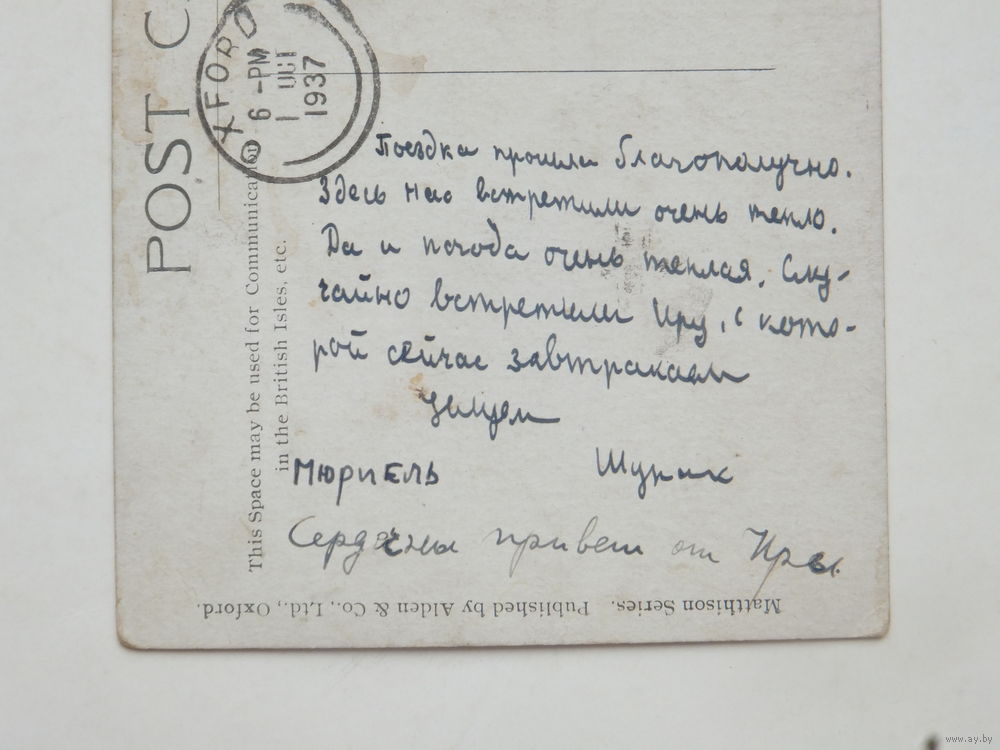 POST C
OXFORD
6 - PM
1 OCT
1937
This Space may be used for Communication
in the British Isles, etc.
Поездка прошла благополучно.
Здесь нас встретили очень тепло.
Да и погода очень теплая. Слу-
чайно встретили Иру, с кото-
рой сейчас завтракаем
Целуем
Мюриель Шурик
Сердечны привет от Иры.
Matthison Series. Published by Alden & Co., Ltd., Oxford.
www.ay.by